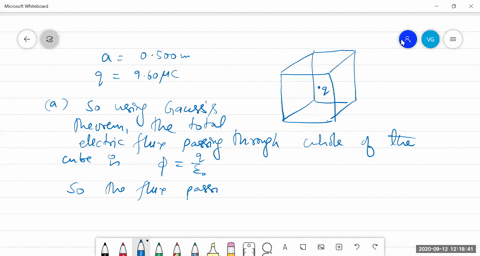 Microsoft Whiteboard
VG
a = 0.500m
q = 9.60μC
q
(a) So using Gauss's
theorem, the total
electric flux passing through whole of the
cube is
φ = q/ε₀
So the flux passi
A
2020-09-12 12:18:41